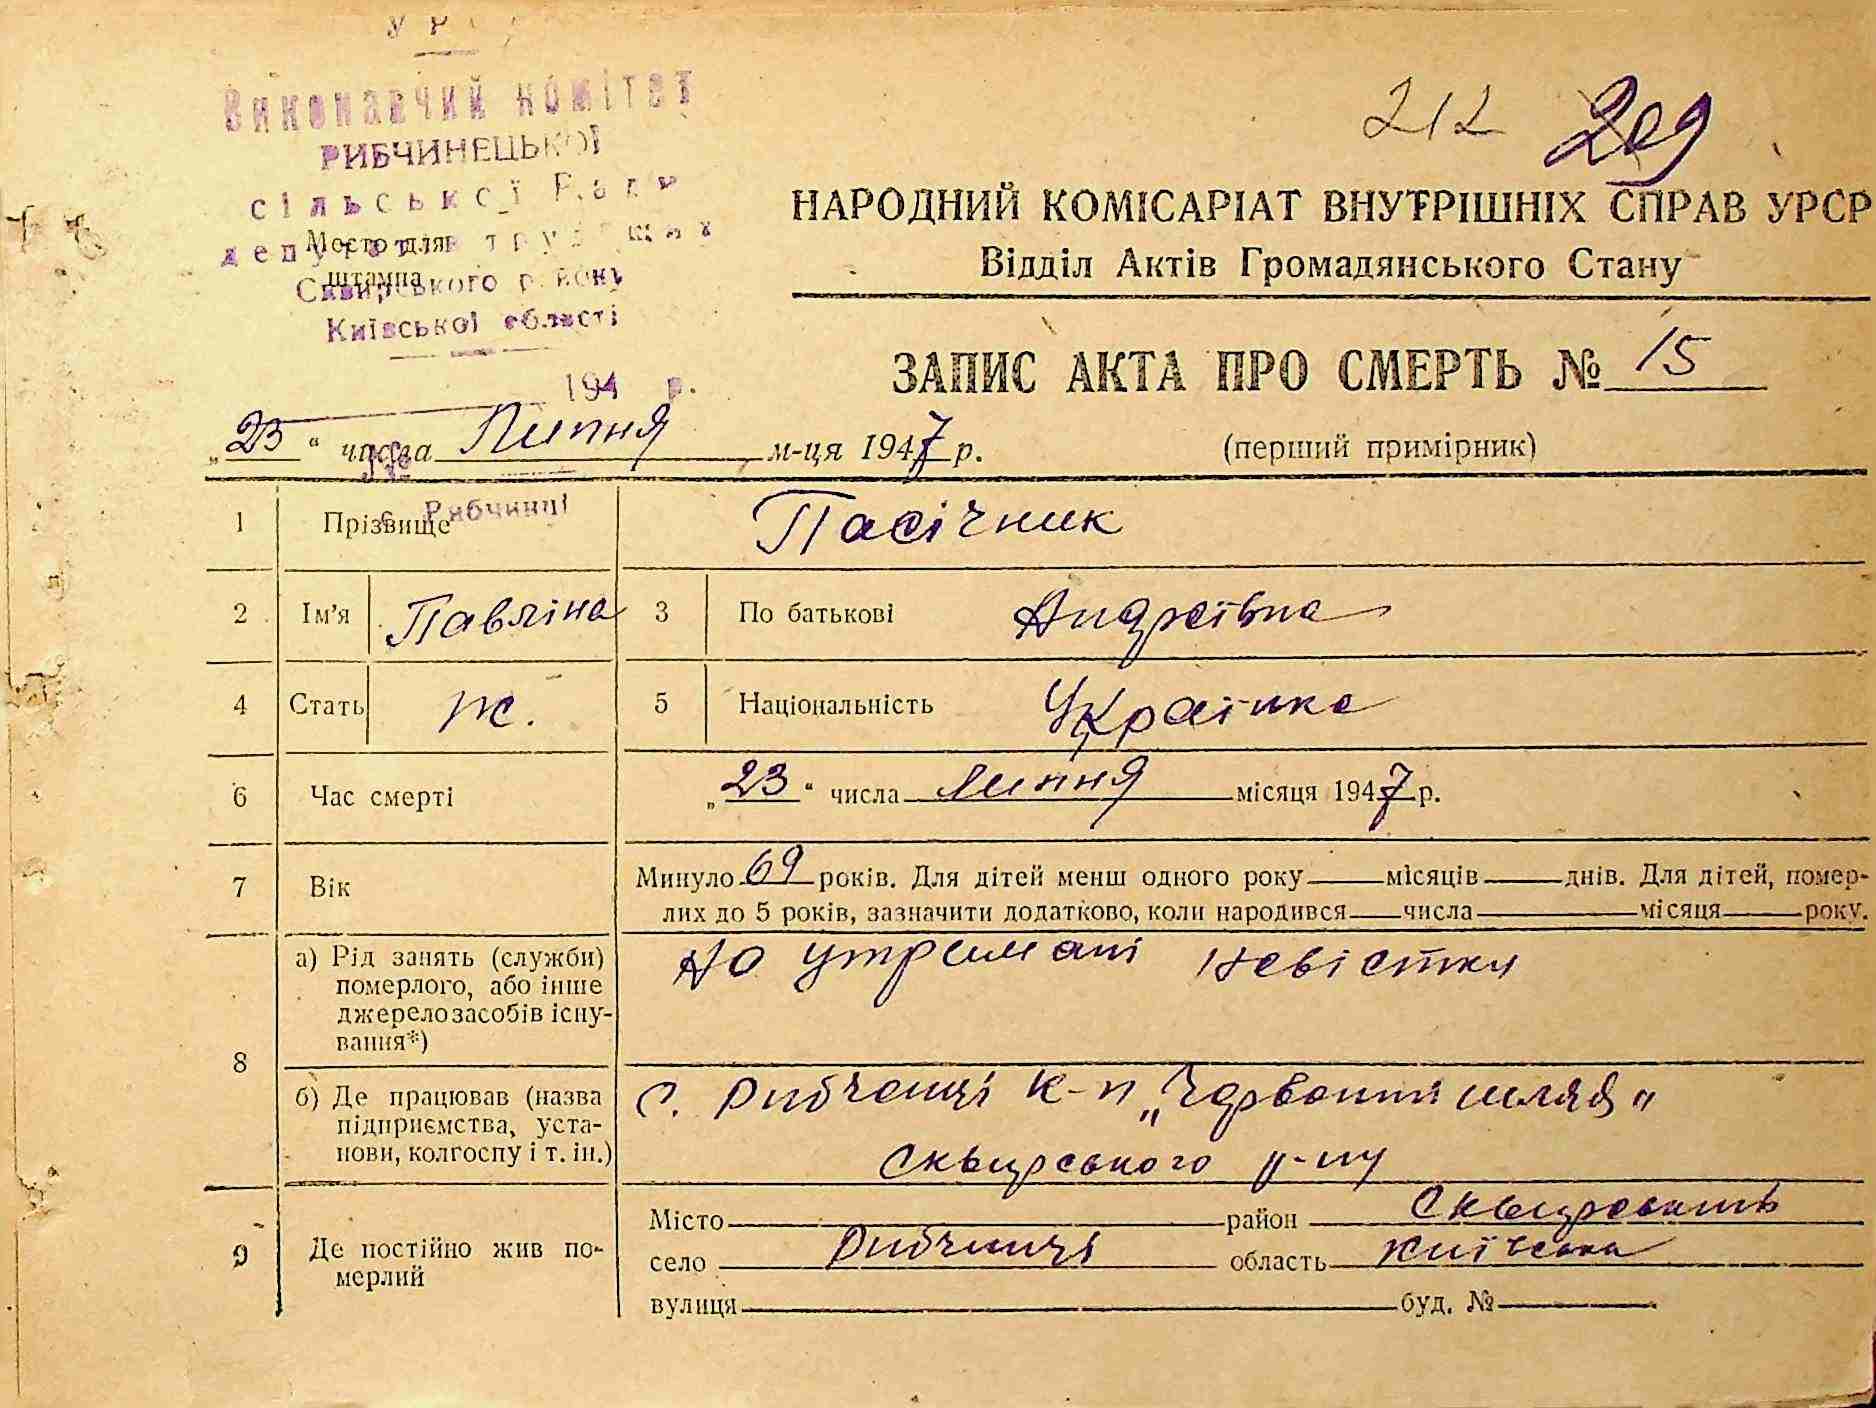 УР
Виконавчий комітет
РИБЧИНЕЦЬКОЇ
сільської Ради
депутатів трудящих
Место для
штампа
Сквирського району
Київської області
194 р.
212 209
НАРОДНИЙ КОМІСАРІАТ ВНУТРІШНІХ СПРАВ УРСР
Відділ Актів Громадянського Стану
ЗАПИС АКТА ПРО СМЕРТЬ № 15
„23" числа Липня м-ця 1947 р.
(перший примірник)
с. Рибчинці
1 Прізвище Пасічник
2 Ім'я Павліна 3 По батькові Андреївна
4 Стать ж. 5 Національність Українка
6 Час смерті „23" числа Липня місяця 1947 р.
7 Вік Минуло 69 років. Для дітей менш одного року місяців днів. Для дітей, помер-
лих до 5 років, зазначити додатково, коли народився числа місяця року.
8 а) Рід занять (служби) померлого, або інше джерело засобів існу- вання*) На утримані невістки
б) Де працював (назва підприємства, уста- нови, колгоспу і т. ін.) С. Рибченці к-п „Червоний шлях"
Сквирського р-ну
9 Де постійно жив по- мерлий
Місто район Сквирський
село Рибчинці область Київська
вулиця буд. №